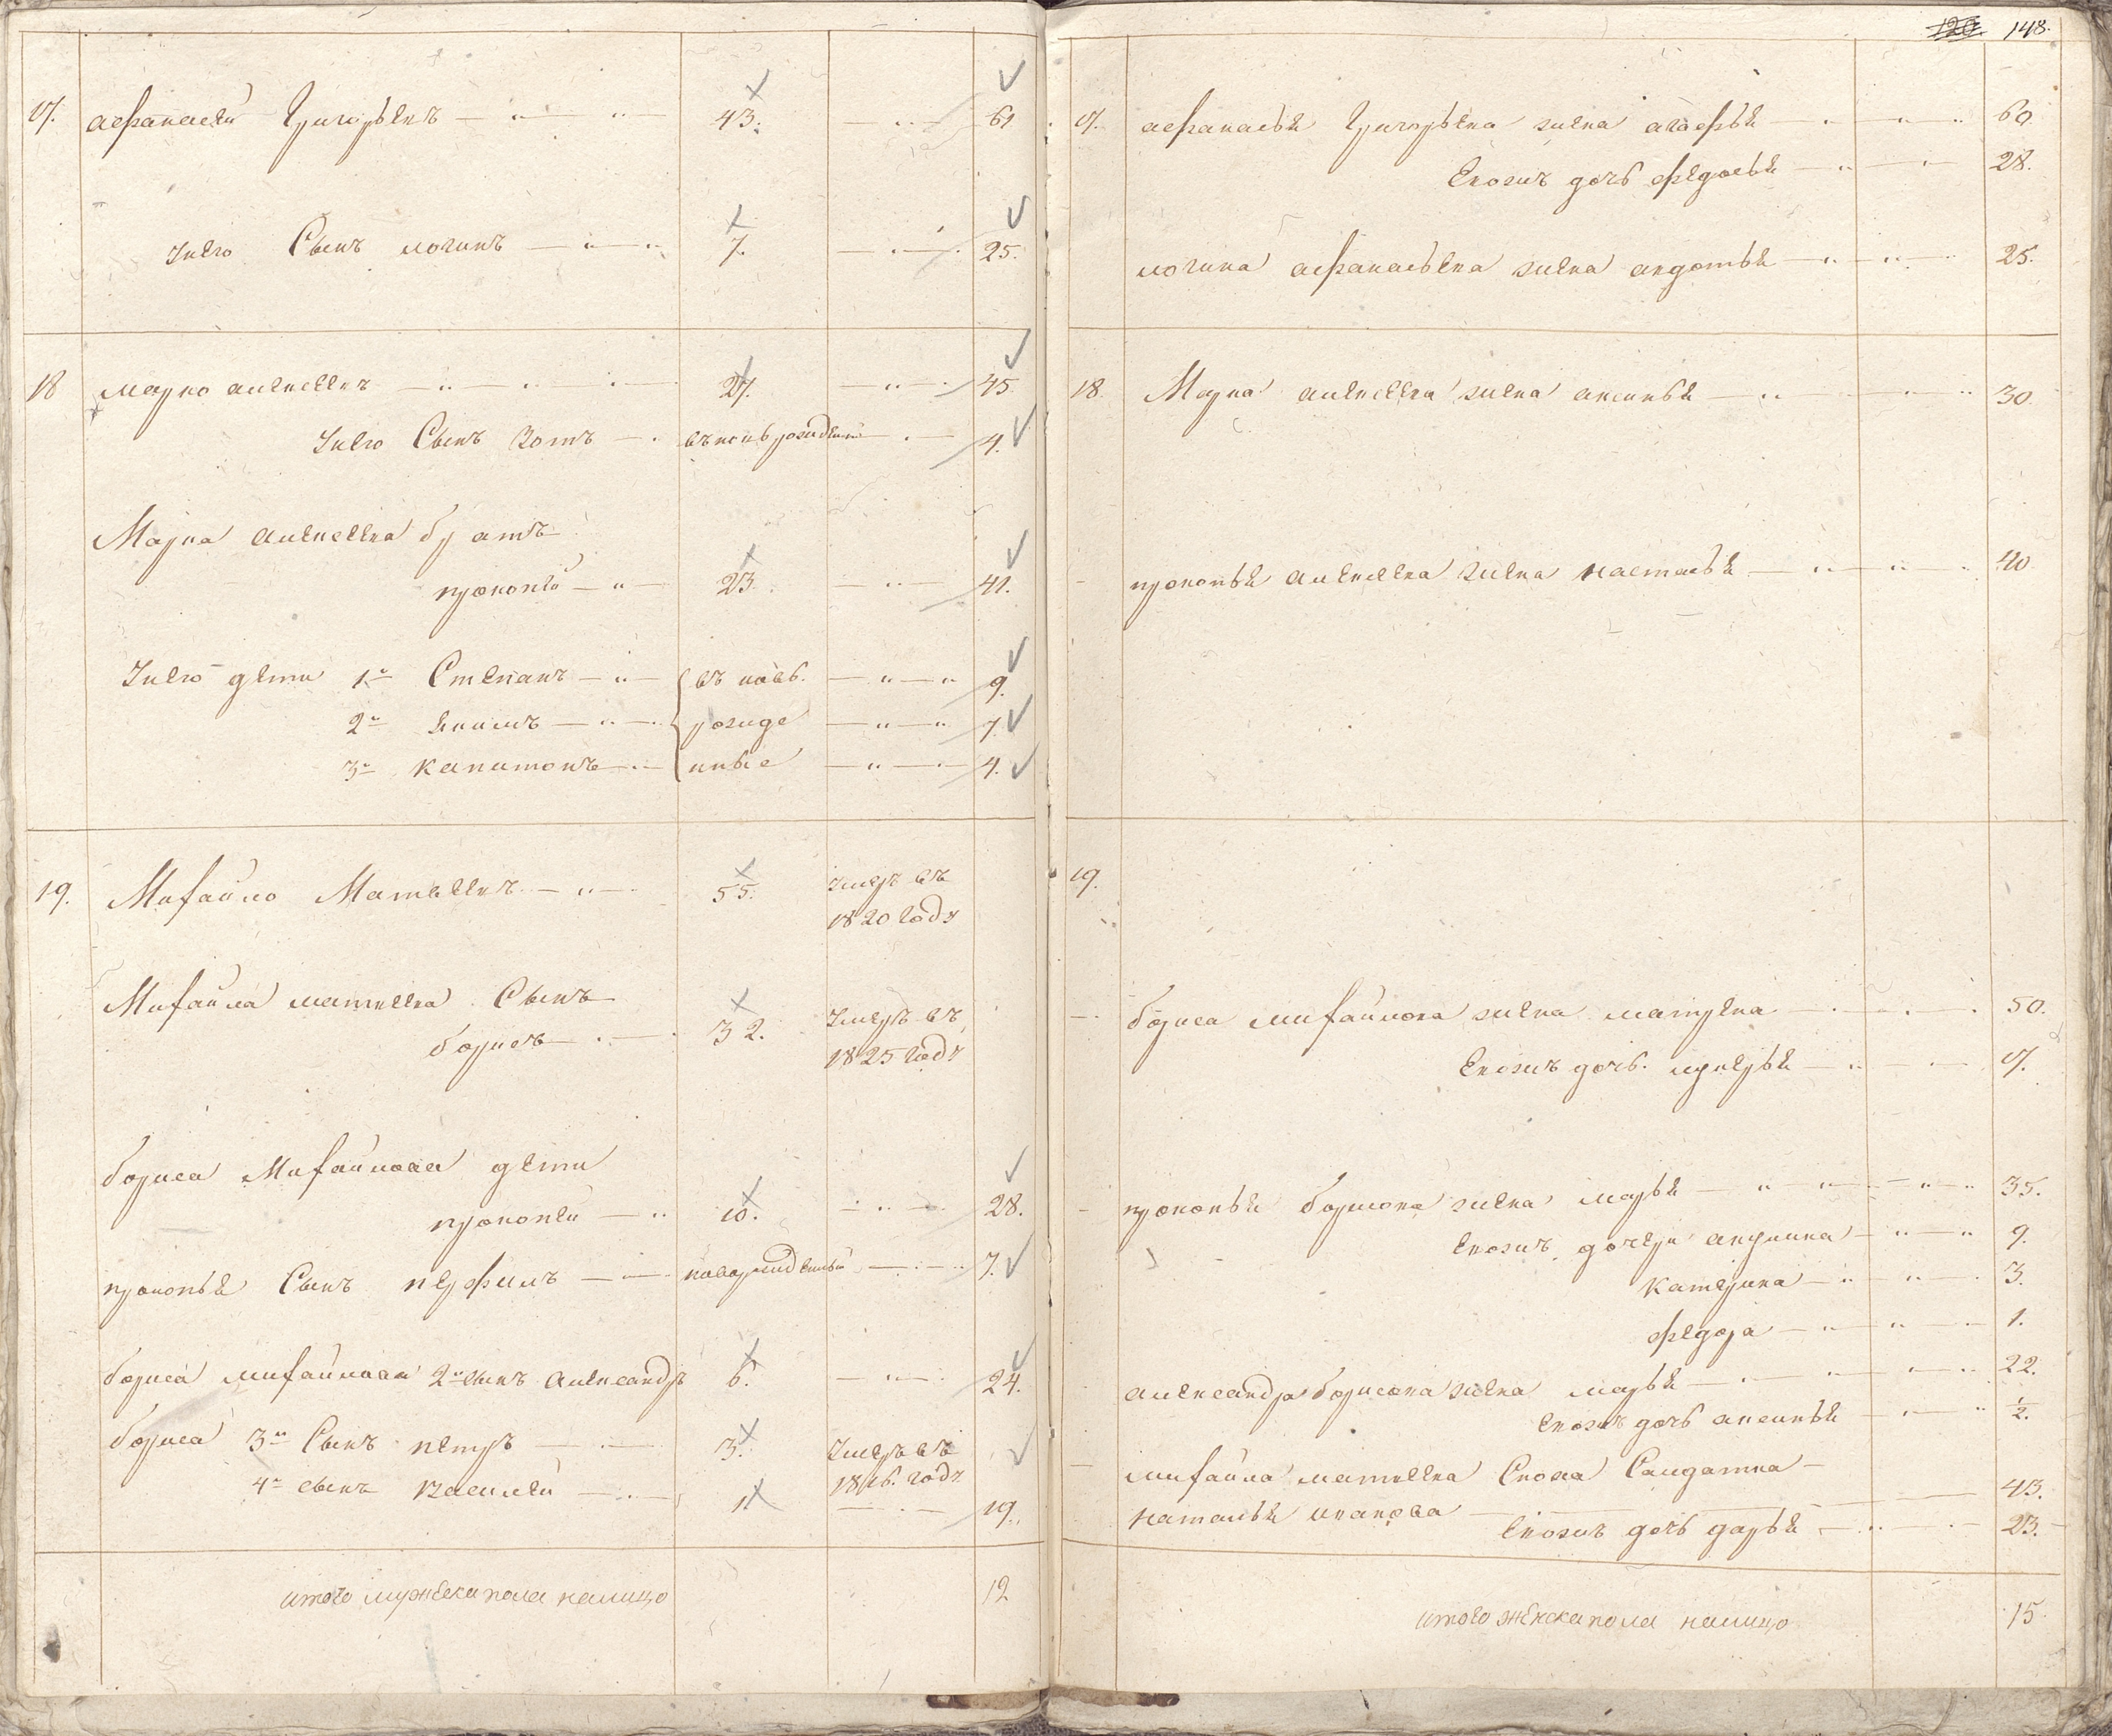 17. афанасей Григорьевъ 43. 61
Унего Сынъ логинъ 7. 25.
18 марко алексеевъ 27. 45.
Унего Сынъ Зотъ вновьрожденъ 4.
Марка алексеева братъ
прокопей 23. 41.
Унего дети 1й Степанъ въ новь. 9.
2й якимъ рожде 7.
3й капитонъ нные 4.
19. Михайло Матвеевъ 55. Умеръ въ
1820 Году
Михайла матвеева Сынъ
борисъ 32. Умеръ въ
1825 Году
бориса Михайлова дети
прокопей 10. 28.
прокопья Сынъ перфилъ новорожденный 7.
бориса михайлова 2й сынъ александръ 6. 24.
бориса 3й Сынъ петръ 3. Умеръ въ
1816. Году
4й сынъ василей 1 19.
итого мужеска пола налицо 12
120 148.
17. афанасья Григорьева жена агафья 60
Евожъ дочь федосья 28.
логина афанасьева жена авдотья 25.
18. Марка алексеева жена аксинья 30
прокопья алексеева жена настасья 40
19.
бориса михайлова жена матрена 50.
Евожъ дочь. лукерья 17.
прокопья борисова жена марья 35.
Евожъ дочери акулина 9.
катерина 3.
федора 1.
александра борисова жена марья 22.
Евожъ дочь аксинья 1/2.
михайла матвеева Сноха Салдатка
наталья иванова 43.
Евожъ дочь дарья 23.
итого женска пола налицо 15